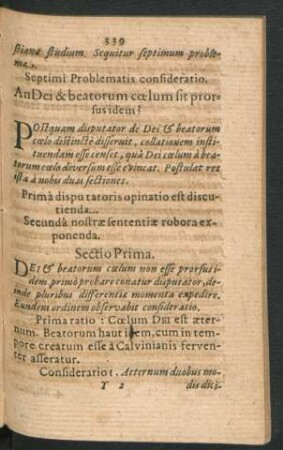 339
stianæ studium. Sequitur septimum proble-
ma.
Septimi Problematis consideratio.
An Dei & beatorum cœlum sit pror-
sus idem?
POstquam disputator de Dei & beatorum
cœlo distinctè disseruit, collationem insti-
tuendam esse censet, quà Dei cœlum à bea-
torum cœlo deversum esse evincat. Postulat res
ista à nobis duas sectiones.
Primâ disputatoris opinatio est discu-
tienda.
Secundâ nostræ sententiæ robora ex-
ponenda.
Sectio Prima.
DEI & beatorum cœlum non esse prorsus i-
dem primò probare conatur disputator, de-
inde pluribus differentiæ momenta expedire.
Eundem ordinem observabit consideratio.
Prima ratio: Cœlum DEI est æter-
num. Beatorum haut item, cum in tem-
pore creatum esse à Calvinianis ferven-
ter asseratur.
Consideratio 1. Aeternum duobus mo-
Y 2 dis dici-